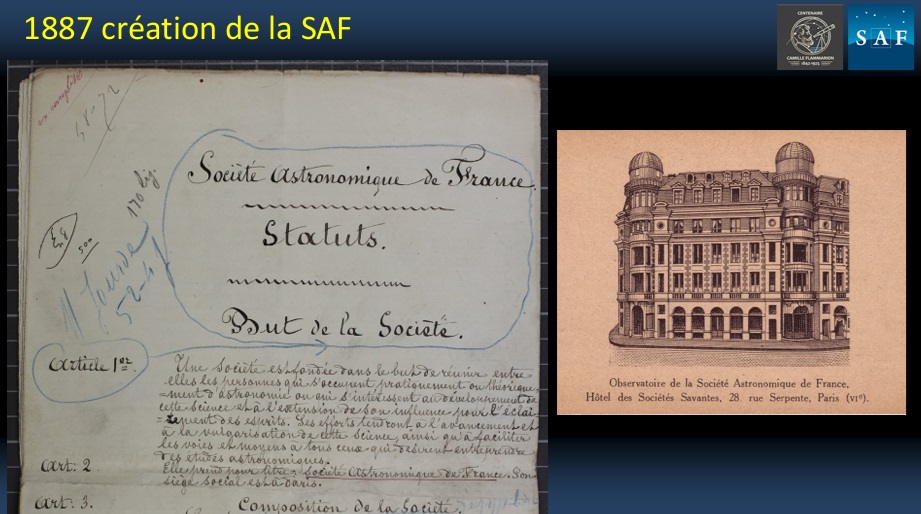 1887 création de la SAF
CENTENAIRE
CAMILLE FLAMMARION
1842-1925
SAF
58-72
170 lig.
500
5-2-4
Société Astronomique de France.
Statuts.
But de la Société.
Article 1er.
Une Société est fondée dans le but de réunir entre
elles les personnes qui s'occupent pratiquement ou théorique-
=ment d'astronomie ou qui s'intéressent au développement de
cette Science et à l'extension de son influence pour l'éclai-
=rement des esprits. Ses efforts tendront à l'avancement et
à la vulgarisation de cette Science, ainsi qu'à faciliter
les voies et moyens à tous ceux qui désirent entreprendre
des études astronomiques.
Art: 2.
Elle prend pour titre: Société Astronomique de France. Son
siège social est à Paris.
Art: 3.
Composition de la Société.
Observatoire de la Société Astronomique de France,
Hôtel des Sociétés Savantes, 28 rue Serpente, Paris (VIe).